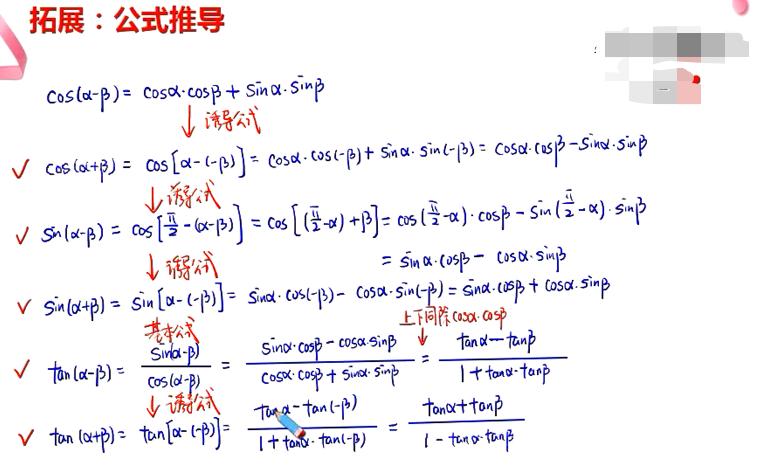 拓展：公式推导
cos(α-β) = cosα·cosβ + sinα·sinβ
↓ 诱导公式
✓ cos(α+β) = cos[α-(-β)] = cosα·cos(-β) + sinα·sin(-β) = cosα·cosβ - sinα·sinβ
↓ 诱导公式
✓ sin(α-β) = cos[π/2-(α-β)] = cos[(π/2-α)+β] = cos(π/2-α)·cosβ - sin(π/2-α)·sinβ
= sinα·cosβ - cosα·sinβ
↓ 诱导公式
✓ sin(α+β) = sin[α-(-β)] = sinα·cos(-β) - cosα·sin(-β) = sinα·cosβ + cosα·sinβ
基本公式 上下同除cosα·cosβ ↓
✓ tan(α-β) = sin(α-β)/cos(α-β) = (sinα·cosβ - cosα·sinβ)/(cosα·cosβ + sinα·sinβ) = (tanα - tanβ)/(1 + tanα·tanβ)
↓ 诱导公式
✓ tan(α+β) = tan[α-(-β)] = (tanα - tan(-β))/(1 + tanα·tan(-β)) = (tanα + tanβ)/(1 - tanα·tanβ)